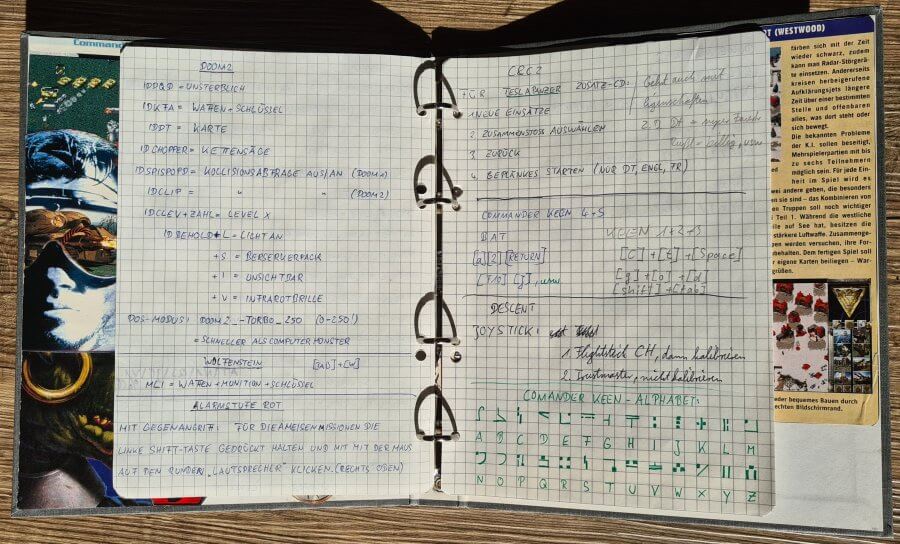 Command
DOOM2
IDDQD = UNSTERBLICH
IDKFA = WAFFEN + SCHLÜSSEL
IDDT = KARTE
IDCHOPPER = KETTENSÄGE
IDSPISPOPD = KOLLISIONSABFRAGE AUS/AN (DOOM1)
IDCLIP = " " (DOOM2)
IDCLEV + ZAHL = LEVEL X
IDBEHOLD + L = LICHT AN
+ S = BERSERVERPACK
+ I = UNSICHTBAR
+ V = INFRAROTBRILLE
DOS-MODUS: DOOM2_-TURBO_250 (0-250!)
= SCHNELLER ALS COMPUTERMONSTER
WOLFENSTEIN
MLI = WAFFEN + MUNITION + SCHLÜSSEL
ALARMSTUFE ROT
MIT GEGENANGRIFF: FÜR DIE AMEISENMISSIONEN DIE
LINKE SHIFT-TASTE GEDRÜCKT HALTEN UND MIT MIT DER MAUS
AUF DEN RUNDEN „LAUTSPRECHER" KLICKEN. (RECHTS OBEN)
C&C2
FÜR TESLAPANZER ZUSATZ-CD:
Geht auch mit
Eigenschaften
1 NEUE EINSÄTZE
2. ZUSAMMENSTOSS AUSWÄHLEN
3. ZURÜCK
4. GEPLÄNKEL STARTEN (NUR DT, ENGL, FR)
COMMANDER KEEN 4+5
BAT
KEEN 1+2+3
[a][2] [RETURN]
[C] + [t] + [Space]
[F10] [j], usw
[g] + [o] + [d]
[shift] + [tab]
DESCENT
JOYSTICK:
1. Flightstick CH, dann kalibrieren
2. Trustmaster, nicht kalibrieren
COMANDER KEEN - ALPHABET:
A B C D E F G H I J K L M
N O P Q R S T U V W X Y Z
(WESTWOOD)
färben sich mit der Zeit
wieder schwarz, zudem
kann man Radar-Störgerä-
te einsetzen. Andererseits
kreisen herbeigerufene
Aufklärungsjets längere
Zeit über einer bestimmten
Stelle und offenbaren
alles, was dort steht oder
sich bewegt.
Die bekannten Probleme
der K.I. sollen beseitigt,
Mehrspielerpartien mit bis
zu sechs Teilnehmern
möglich sein. Für jede Ein-
heit im Spiel wird es
wei andere geben, die besonders
sind – das Kombinieren von
Truppen soll noch wichtiger
Teil 1. Während die westliche
auf See hat, besitzen die
stärkere Luftwaffe. Zusammenge-
werden versuchen, ihre For-
behalten. Dem fertigen Spiel soll
eigene Karten beiliegen – War-
grüßen.
eder bequemes Bauen durch
rechten Bildschirmrand.